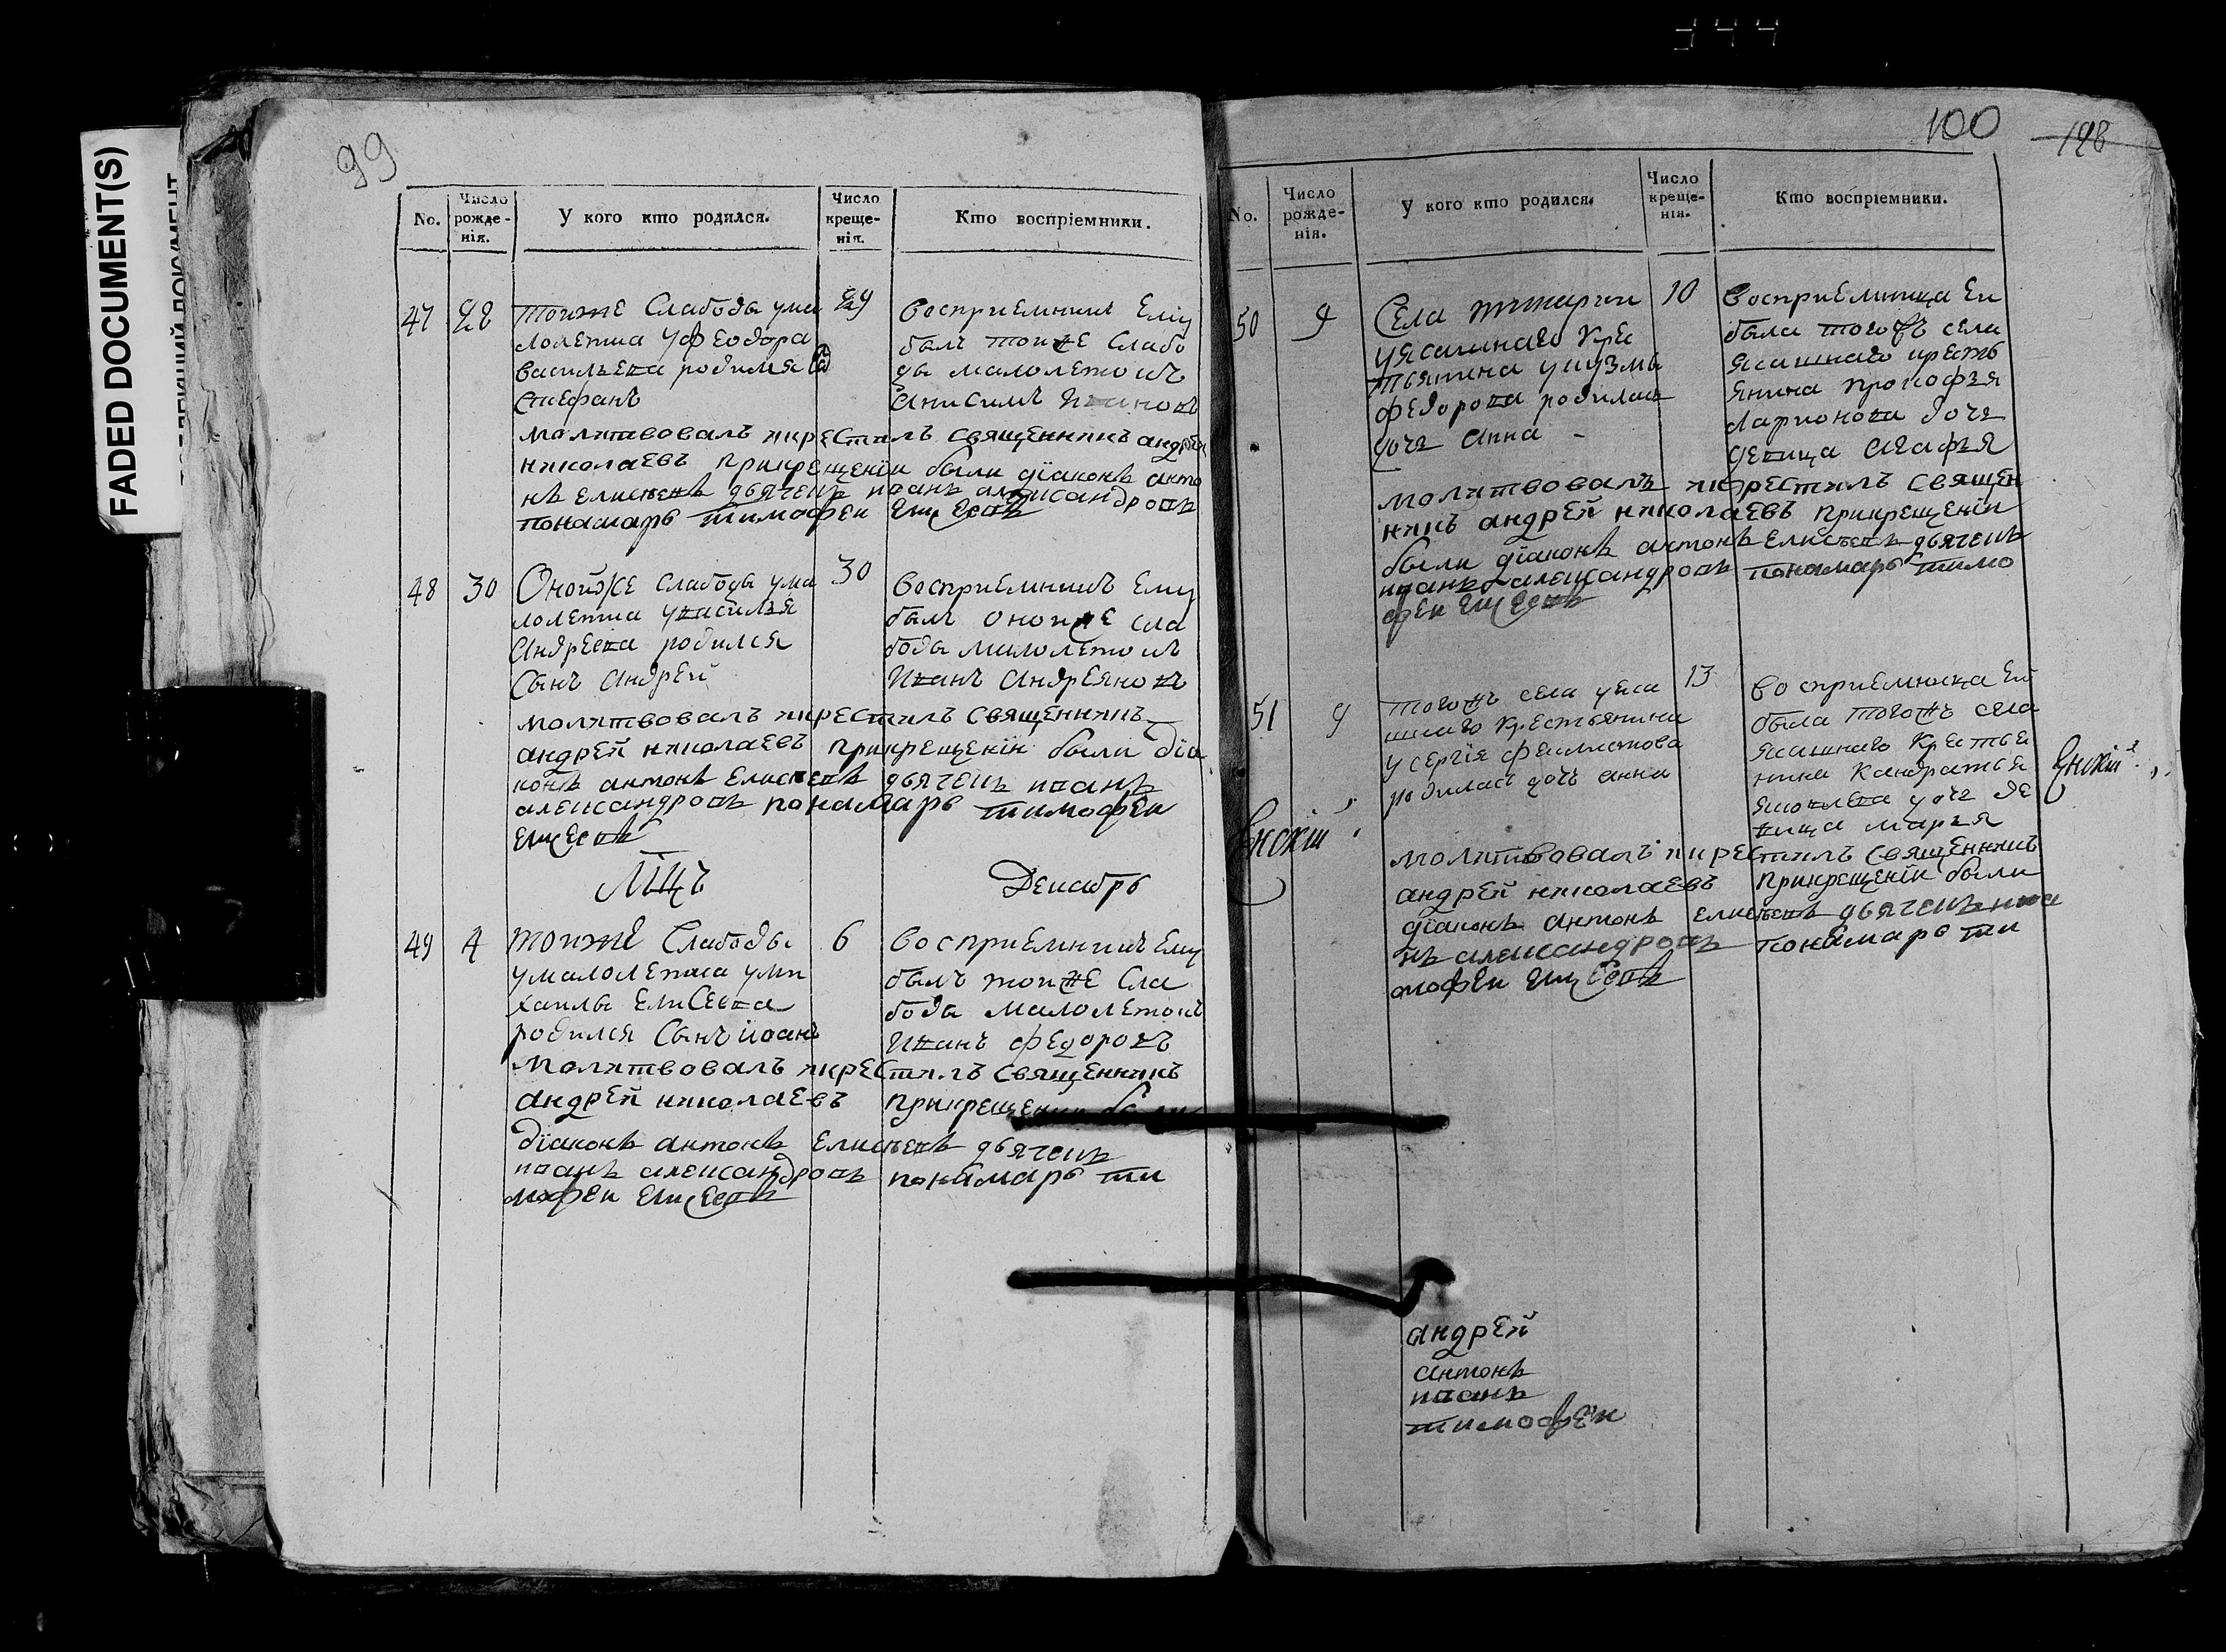 99
No.
Число рожденія.
У кого кто родился.
Число крещенія.
Кто воспріемники.
47
28
тойже Слабоды ума
лолетка уфеодора
васильева родился
Стефанъ
29
восприемникъ Ему
былъ тойже Слабо
ды малолетокъ
Анисимъ Ивановъ
молитвовалъ икрестилъ священникъ андрей
николаевъ прикрещенїи были дїаконъ анто
нъ елисѣевъ дьячекъ иванъ александровъ
понамарь тимофеи Елисеевъ
48
30
Онойже слабоды ума
лолетка увасилья
Андреева родился
Сынъ Андрей
30
восприемникъ Ему
былъ онойже сла
боды малолетокъ
Иванъ Андреяновъ
молитвовалъ икрестилъ священникъ
андрей николаевъ прикрещенїи были дїа
конъ антонъ елисѣевъ дьячекъ иванъ
александровъ понамарь тимофеи
Елисеевъ
Мцъ Декабрь
49
4
тойже Слабоды
умалолетка уми
хаилы Елисеева
родился Сынъ іоанъ
6
восприемникъ Ему
былъ тойже Сла
боды малолетокъ
Иванъ федоровъ
молитвовалъ икрестилъ священникъ
андрей николаевъ прикрещении были
дїаконъ антонъ елисѣевъ дьячекъ
иванъ александровъ понамарь ти
мофеи Елисеевъ
100
198
No.
Число рожденія.
У кого кто родился.
Число крещенія.
Кто воспріемники.
50
9
Села
уясашнаго кре
стьянина укузмы
федорова родилась
дочь Анна
10
восприемница Еи
была тогожъ села
ясашнаго кресть
янина прокофья
Ларионова дочь
девица Агафья
молитвовалъ икрестилъ священ
никъ андрей николаевъ прикрещенїи
были дїаконъ антонъ елисѣевъ дьячекъ
иванъ александровъ понамарь тимо
феи Елисеевъ
51
9
тогожъ села уяса
шнаго крестьянина
усергїя феклистова
родилась дочь анна
13
восприемница Ей
была тогожъ села
ясашнаго крестья
нина Кандратья
яковлева дочь де
вица марья
молитвовалъ икрестилъ священникъ
андрей николаевъ прикрещенїи были
дїаконъ антонъ елисѣевъ дьячекъ ива
нъ александровъ понамарь ти
мофеи Елисеевъ
андрей
антонъ
иванъ
тимофеи
FADED DOCUMENT(S)